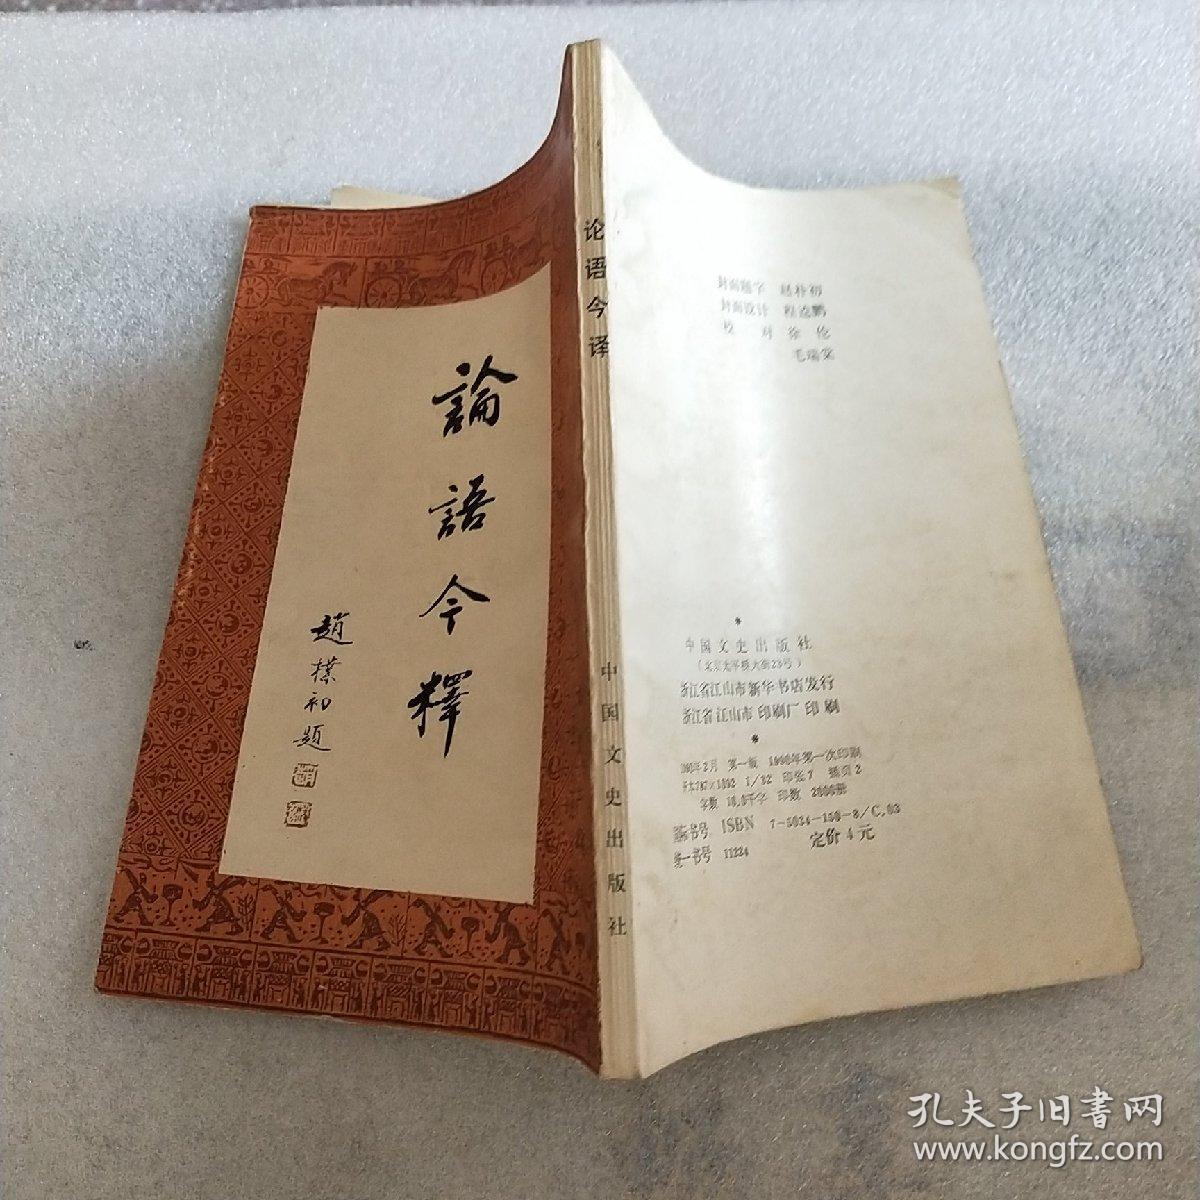 論語今釋
趙樸初題
论语今译
中国文史出版社
封面题字 赵朴初
封面设计 程适鹏
校 对 徐 伦
毛瑞棠
*
中国文史出版社
(北京太平桥大街23号)
浙江省江山市新华书店发行
浙江省江山市印刷厂印刷
*
1990年2月 第一版 1990年第一次印刷
开本787×1092 1/32 印张7 插页2
印数 2000册
国际书号 ISBN 7-5034-150-8/C.03
统一书号 11224 定价4元
孔夫子旧书网
www.kongfz.com